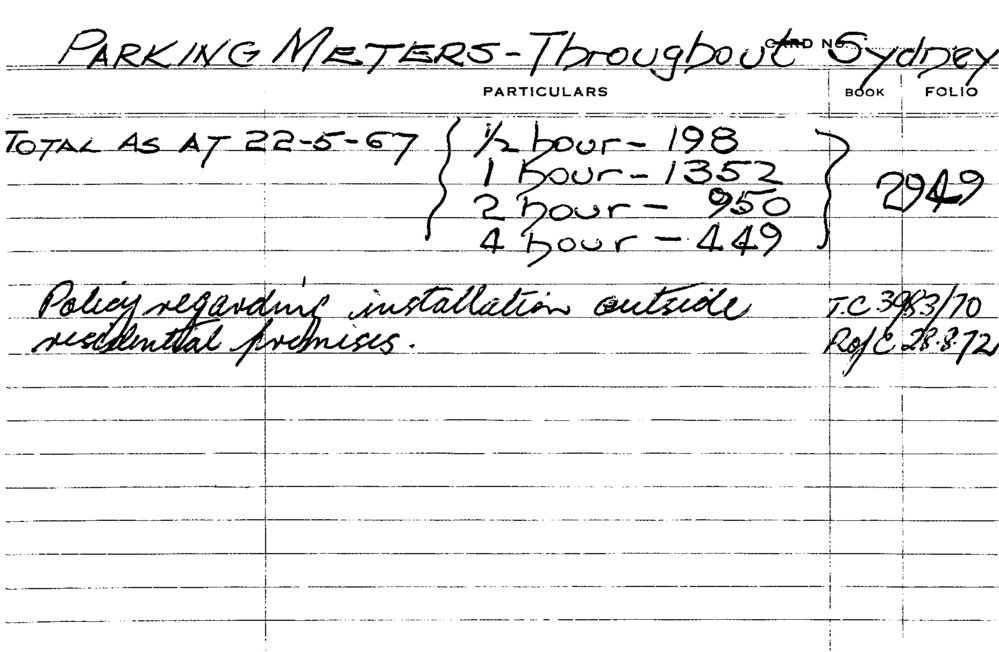 PARKING METERS - Throughout Sydney
CARD NO.
PARTICULARS BOOK FOLIO
TOTAL AS AT 22-5-67 { ½ hour - 198 }
1 hour - 1352
2 hour - 950 2949
4 hour - 449
Policy regarding installation outside T.C 3983/70
residential premises. Rof C 28.8.72